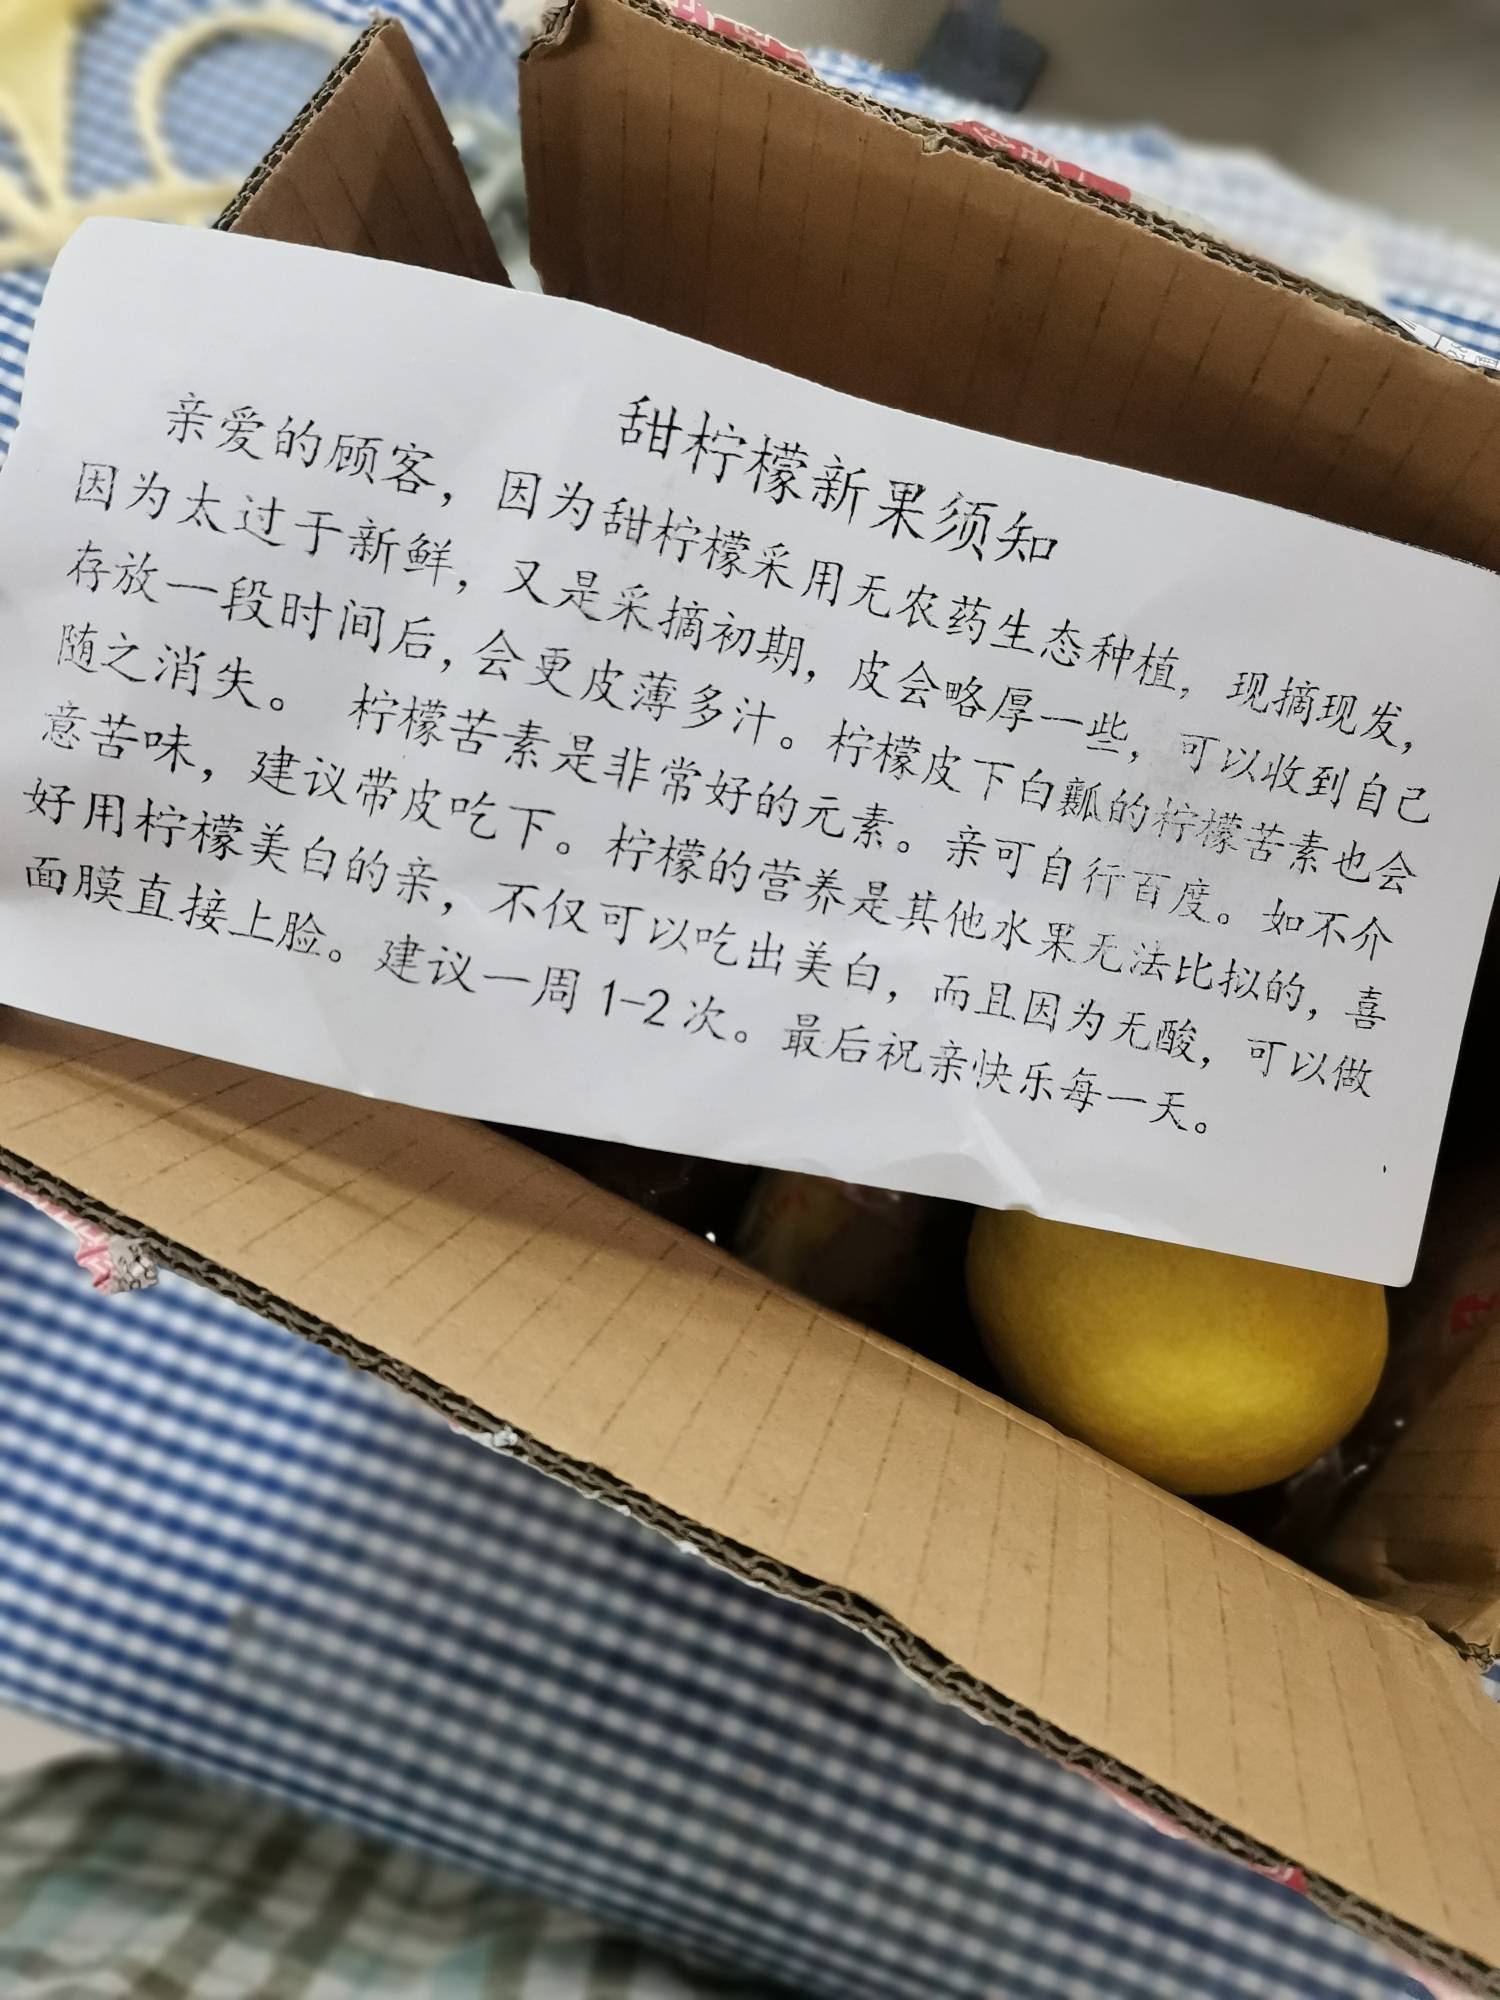 甜柠檬新果须知
亲爱的顾客，因为甜柠檬采用无农药生态种植，现摘现发，
因为太过于新鲜，又是采摘初期，皮会略厚一些，可以收到自己
存放一段时间后，会更皮薄多汁。柠檬皮下白瓤的柠檬苦素也会
随之消失。 柠檬苦素是非常好的元素。亲可自行百度。如不介
意苦味，建议带皮吃下。柠檬的营养是其他水果无法比拟的，喜
好用柠檬美白的亲，不仅可以吃出美白，而且因为无酸，可以做
面膜直接上脸。建议一周1-2次。最后祝亲快乐每一天。